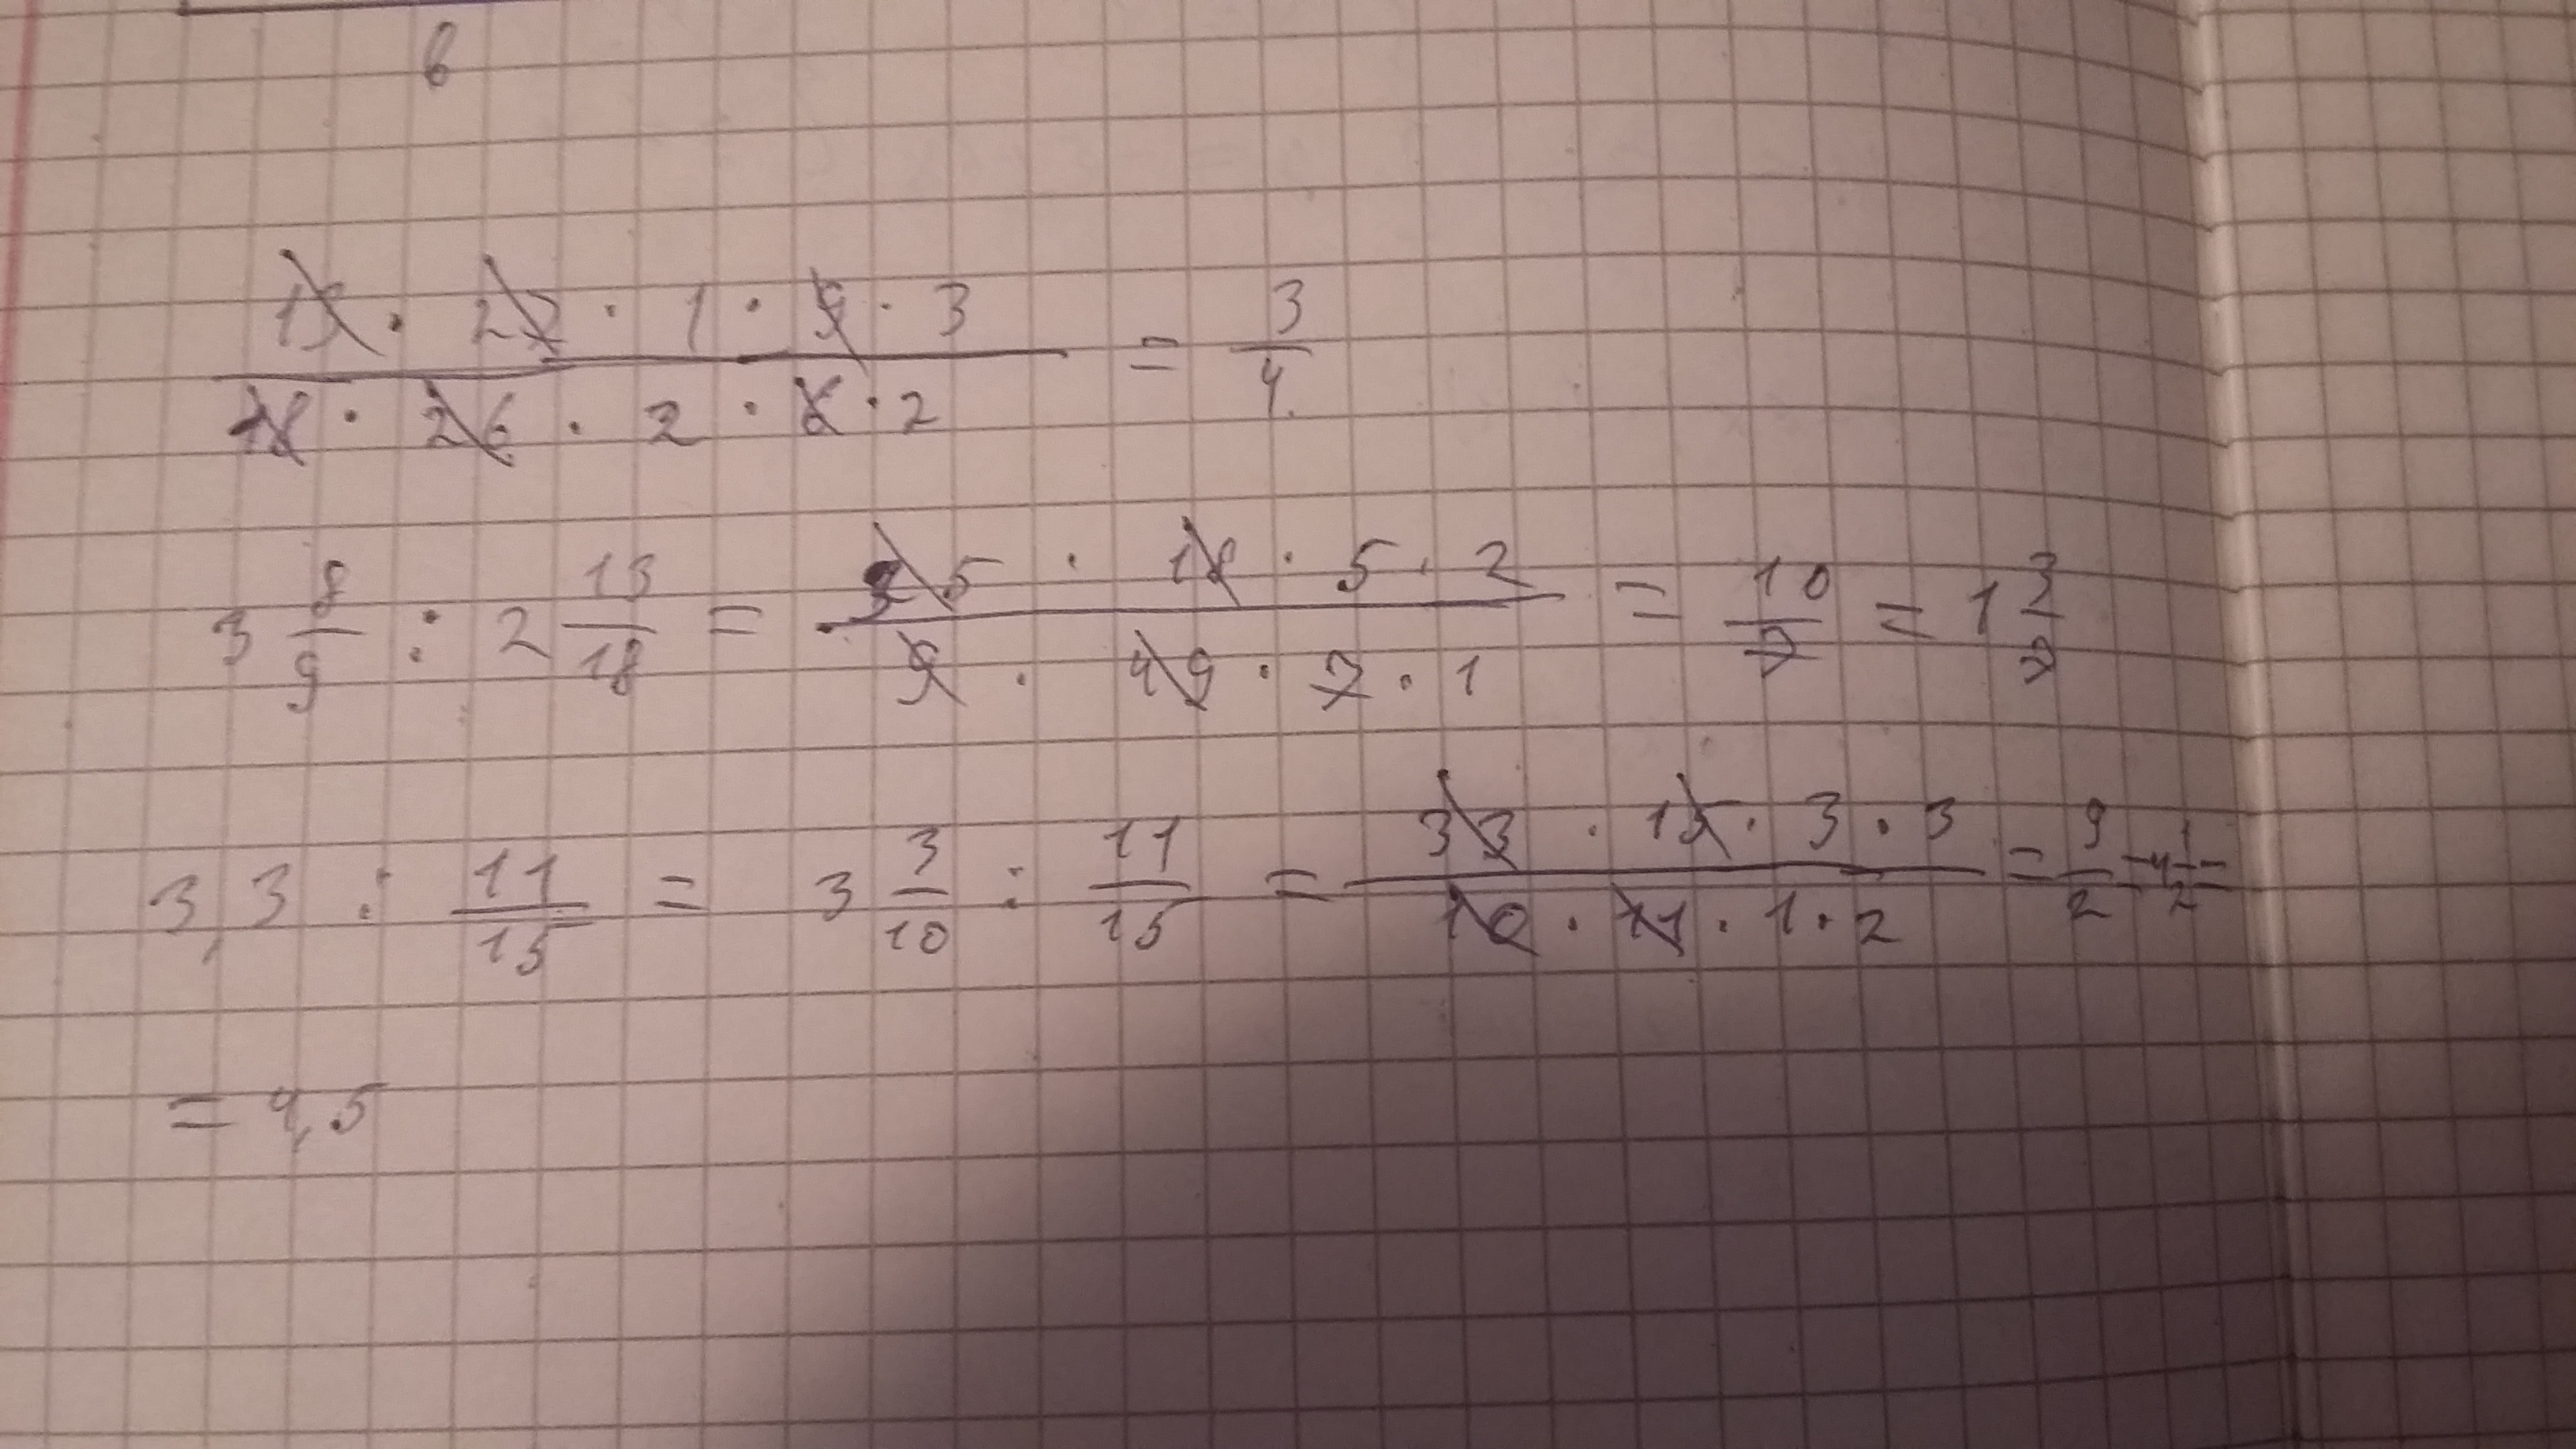 6
13 · 27 · 1 · 9 · 3 / 18 · 26 · 2 · 6 · 2 = 3/4
3 8/9 : 2 13/18 = 35 · 18 · 5 · 2 / 9 · 49 · 7 · 1 = 10/7 = 1 3/7
3,3 : 11/15 = 3 3/10 : 11/15 = 33 · 15 · 3 · 3 / 10 · 11 · 1 · 2 = 9/2 = 4 1/2 =
= 4,5